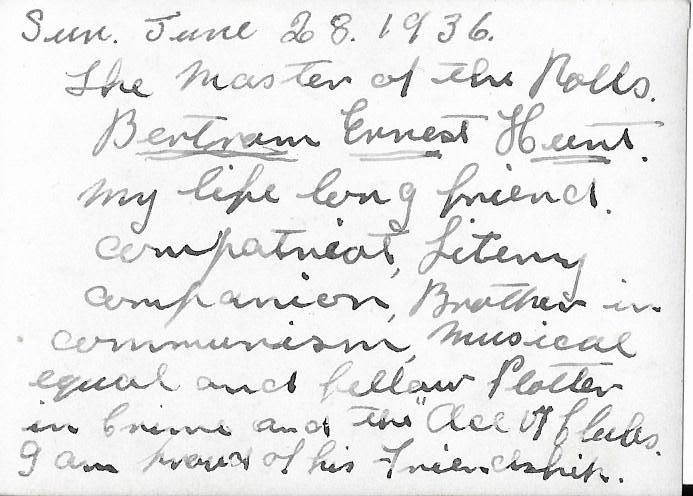 Sun. June 28. 1936.
The Master of the Rolls.
Bertram Ernest Hunt.
My life long friend.
compatriot, Literry
companion, Brother in
communism, Musical
equal and fellow Plotter
in Crime and the "Ace of Clubs.
I am proud of his Friendship.